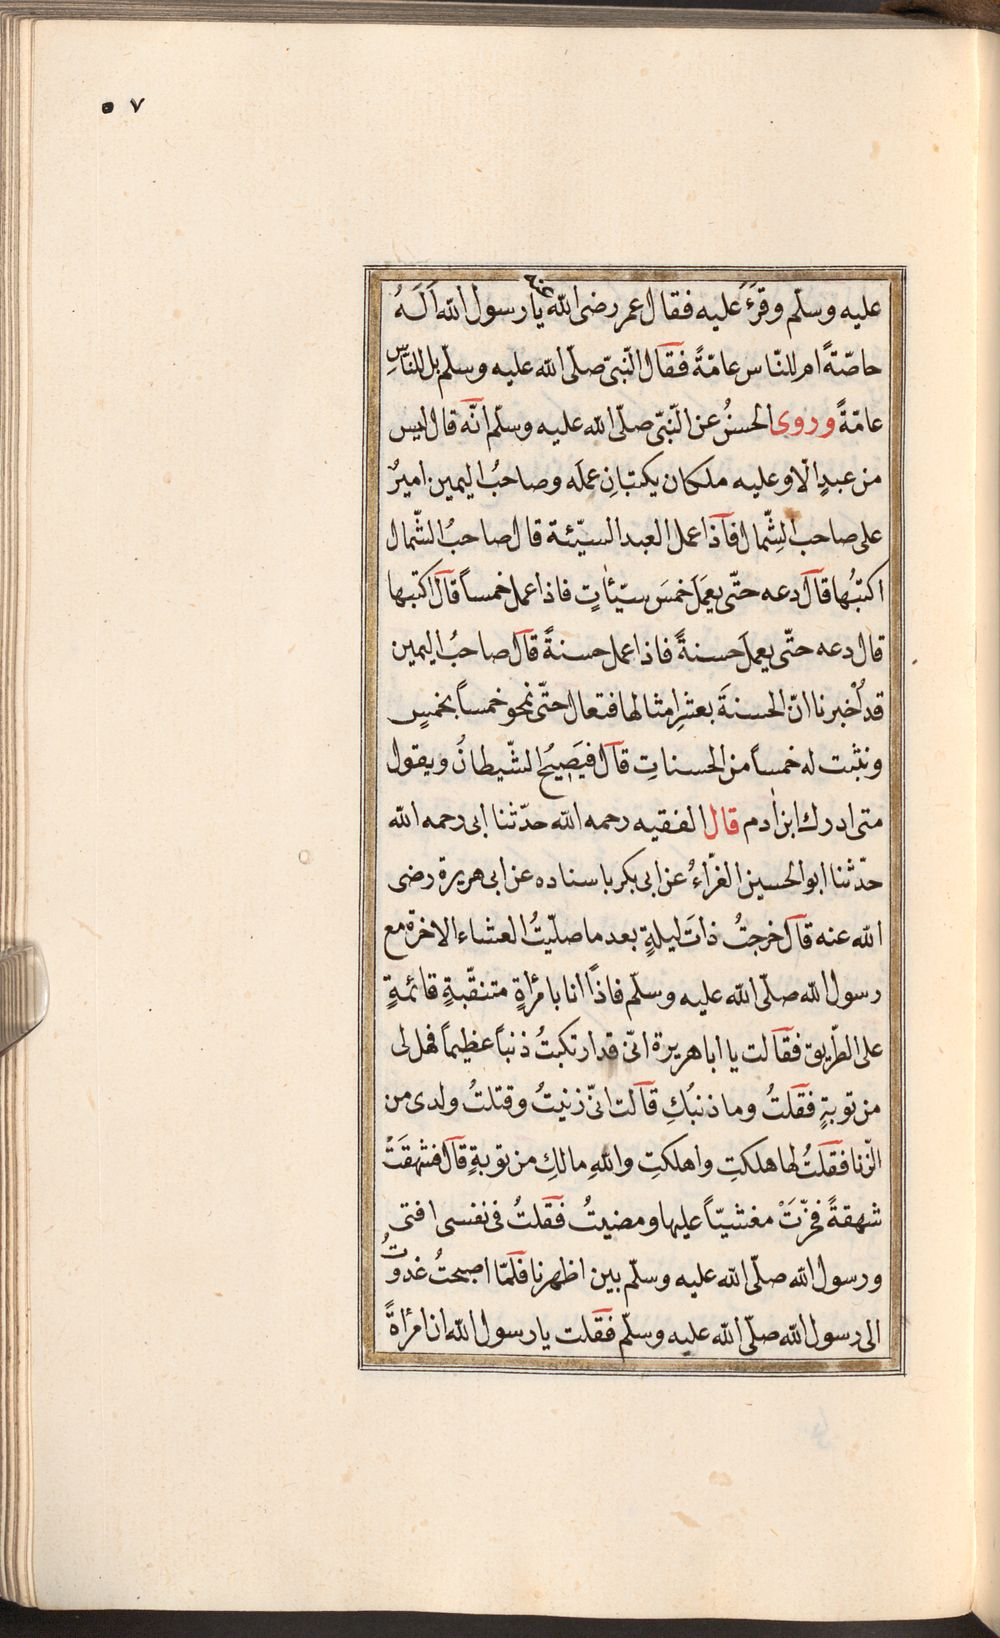 ٥٧
عليه وسلّم وقرَءَ عليه فقال عمر رضى الله عنه يا رسول الله اَلَهُ
خاصّةً ام للنّاس عامّةً فقال النّبىّ صلّى الله عليه وسلّم بل للنّاسِ
عامّةً وروى الحسنُ عن النّبىّ صلّى الله عليه وسلّم انّه قال ليس
من عبدٍ الّا وعليه ملكان يكتبانِ عملَه وصاحبُ اليمين اميرٌ
على صاحب الشِّمال فاذا عمل العبد السيّئة قال صاحبُ الشّمال
اكتبُها قال دعه حتّى يعمَلَ خمسَ سيّئاتٍ فاذا عمل خمساً قال اكتبها
قال دعه حتّى يعملَ حسنةً فاذا عمل حسنةً قال صاحبُ اليمين
قد اُخبرنا انّ الحسنةَ بعشرِ امثالها فتعال حتّى نمحو خمساً بخمسٍ
ونثبت له خمساً من الحسناتِ قال فيَصيحُ الشّيطانُ ويقول
متى ادرك ابن اٰدم قال الفقيه رحمه الله حدّثنا ابى رحمه الله
حدّثنا ابو الحسين الفرّاءُ عن ابى بكر باسناده عن ابى هريرة رضى
الله عنه قال خرجتُ ذاتَ ليلةٍ بعد ما صلّيتُ العشاء الاخرة مع
رسول الله صلّى الله عليه وسلّم فاذًا انا بامرأةٍ متنقّبةٍ قائمةٍ
على الطّريق فقالت يا ابا هريرة انّى قد ارتكبتُ ذنباً عظيماً فهل لى
من توبةٍ فقلتُ وما ذنبُكِ قالت انّى زنيتُ وقتلتُ ولدى من
الزّنا فقلتُ لها هلكتِ واهلكتِ واللهِ مالكِ من توبةٍ قال فشهقَتْ
شهقةً فخرّتَ مغشيّاً عليها ومضيتُ فقلتُ فى نفسى افتى
ورسول الله صلّى الله عليه وسلّم بين اظهرنا فلمّا اصبحتُ غدوتُ
الى رسول الله صلّى الله عليه وسلّم فقلت يا رسول الله ان امرأةً